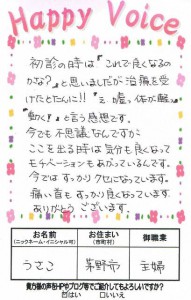 Happy Voice
初診の時は『これで良くなるの
かな？』と思いましたが治療を受
けたとたんに!!『え、嘘。体が軽い
動く』と言う感想です。
今でも不思議なんですが
ここを出る時は気分も良くなって
モチベーションもあがっているんです。
今では すっかり クセになっています。
痛い首もすっかり良くなっています
ありがとうございます。
お名前
(ニックネーム・イニシャル可)
お住まい
(市町村)
御職業
うさこ
茅野市
主婦
貴方様の声をHPやブログ等でご紹介してもよろしいですか？
はい
□いいえ